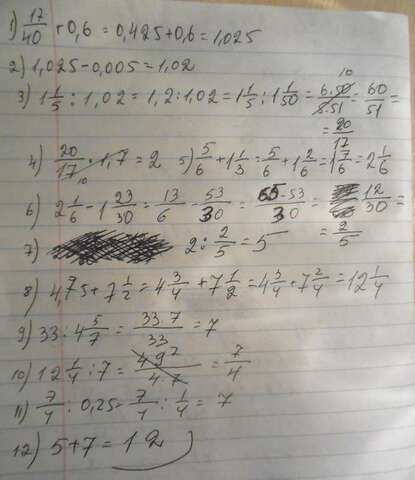 1) 17/40 + 0,6 = 0,425 + 0,6 = 1,025
2) 1,025 - 0,005 = 1,02
3) 1 1/5 : 1,02 = 1,2 : 1,02 = 1 1/5 : 1 1/50 = 6·50/5·51 10 = 60/51 =
= 20/17
4) 20/17 · 1,7 10 = 2 5) 5/6 + 1 1/3 = 5/6 + 1 2/6 = 1 7/6 = 2 1/6
6) 2 1/6 - 1 23/30 = 13/6 - 53/30 = 65-53/30 = 12/30 =
= 2/5
7) 2 : 2/5 = 5
8) 4,75 + 7 1/2 = 4 3/4 + 7 1/2 = 4 3/4 + 7 2/4 = 12 1/4
9) 33 : 4 5/7 = 33·7/33 = 7
10) 12 1/4 : 7 = 49/4·7 = 7/4
11) 7/4 : 0,25 = 7/4 : 1/4 = 7
12) 5 + 7 = 12